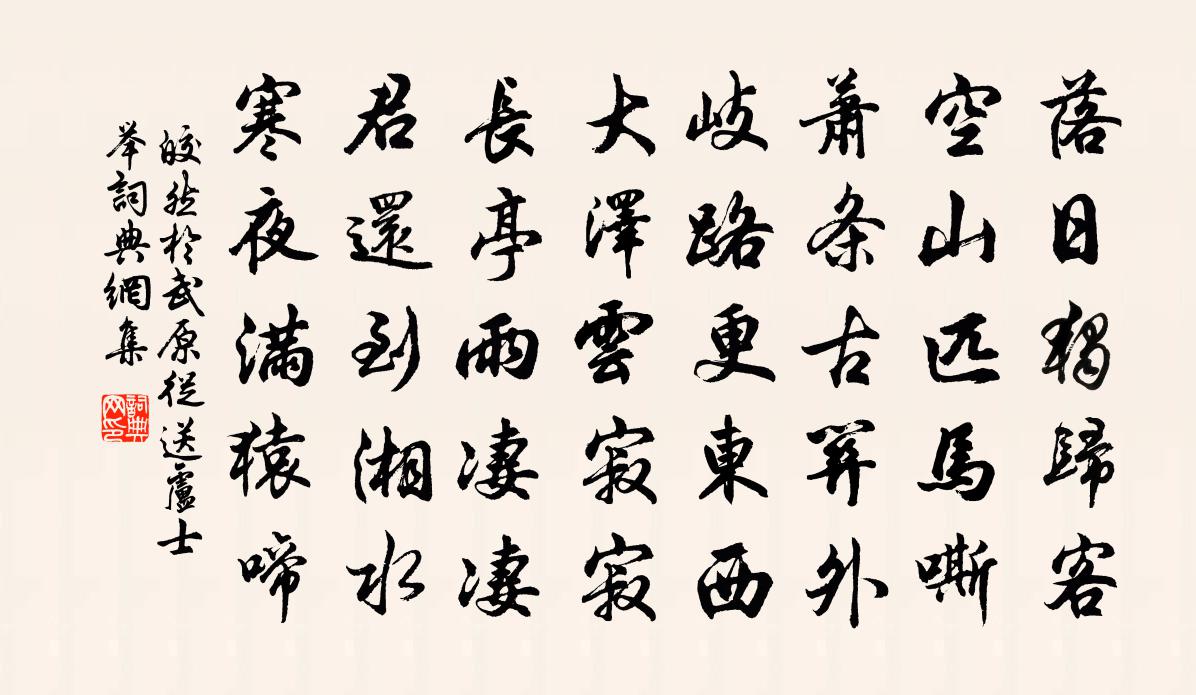 落日獨歸客
空山匹馬嘶
蕭条古關外
岐路更東西
大澤雲寂寂
長亭雨凄凄
君還到湘水
寒夜滿猿啼
皎然於武原從送盧士
举詞典網集
詞典网印